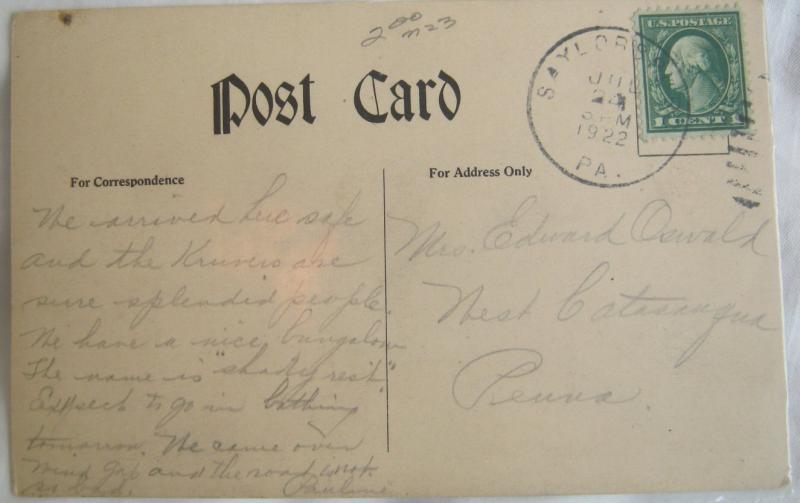 2 00
m23
Post Card
U.S. POSTAGE
1 CENT 1
SAYLORS
JUL
24
3 PM
1922
PA.
For Correspondence
For Address Only
We arrived here safe
and the Kruvers are
sure splendid people.
We have a nice bungalow
The name is "shady rest"
Expect to go in bathing
tomorrow. We came over
Wind Gap and the road is not
so bad. Pauline
Mrs. Edward Oswald
West Catasauqua
Penna.